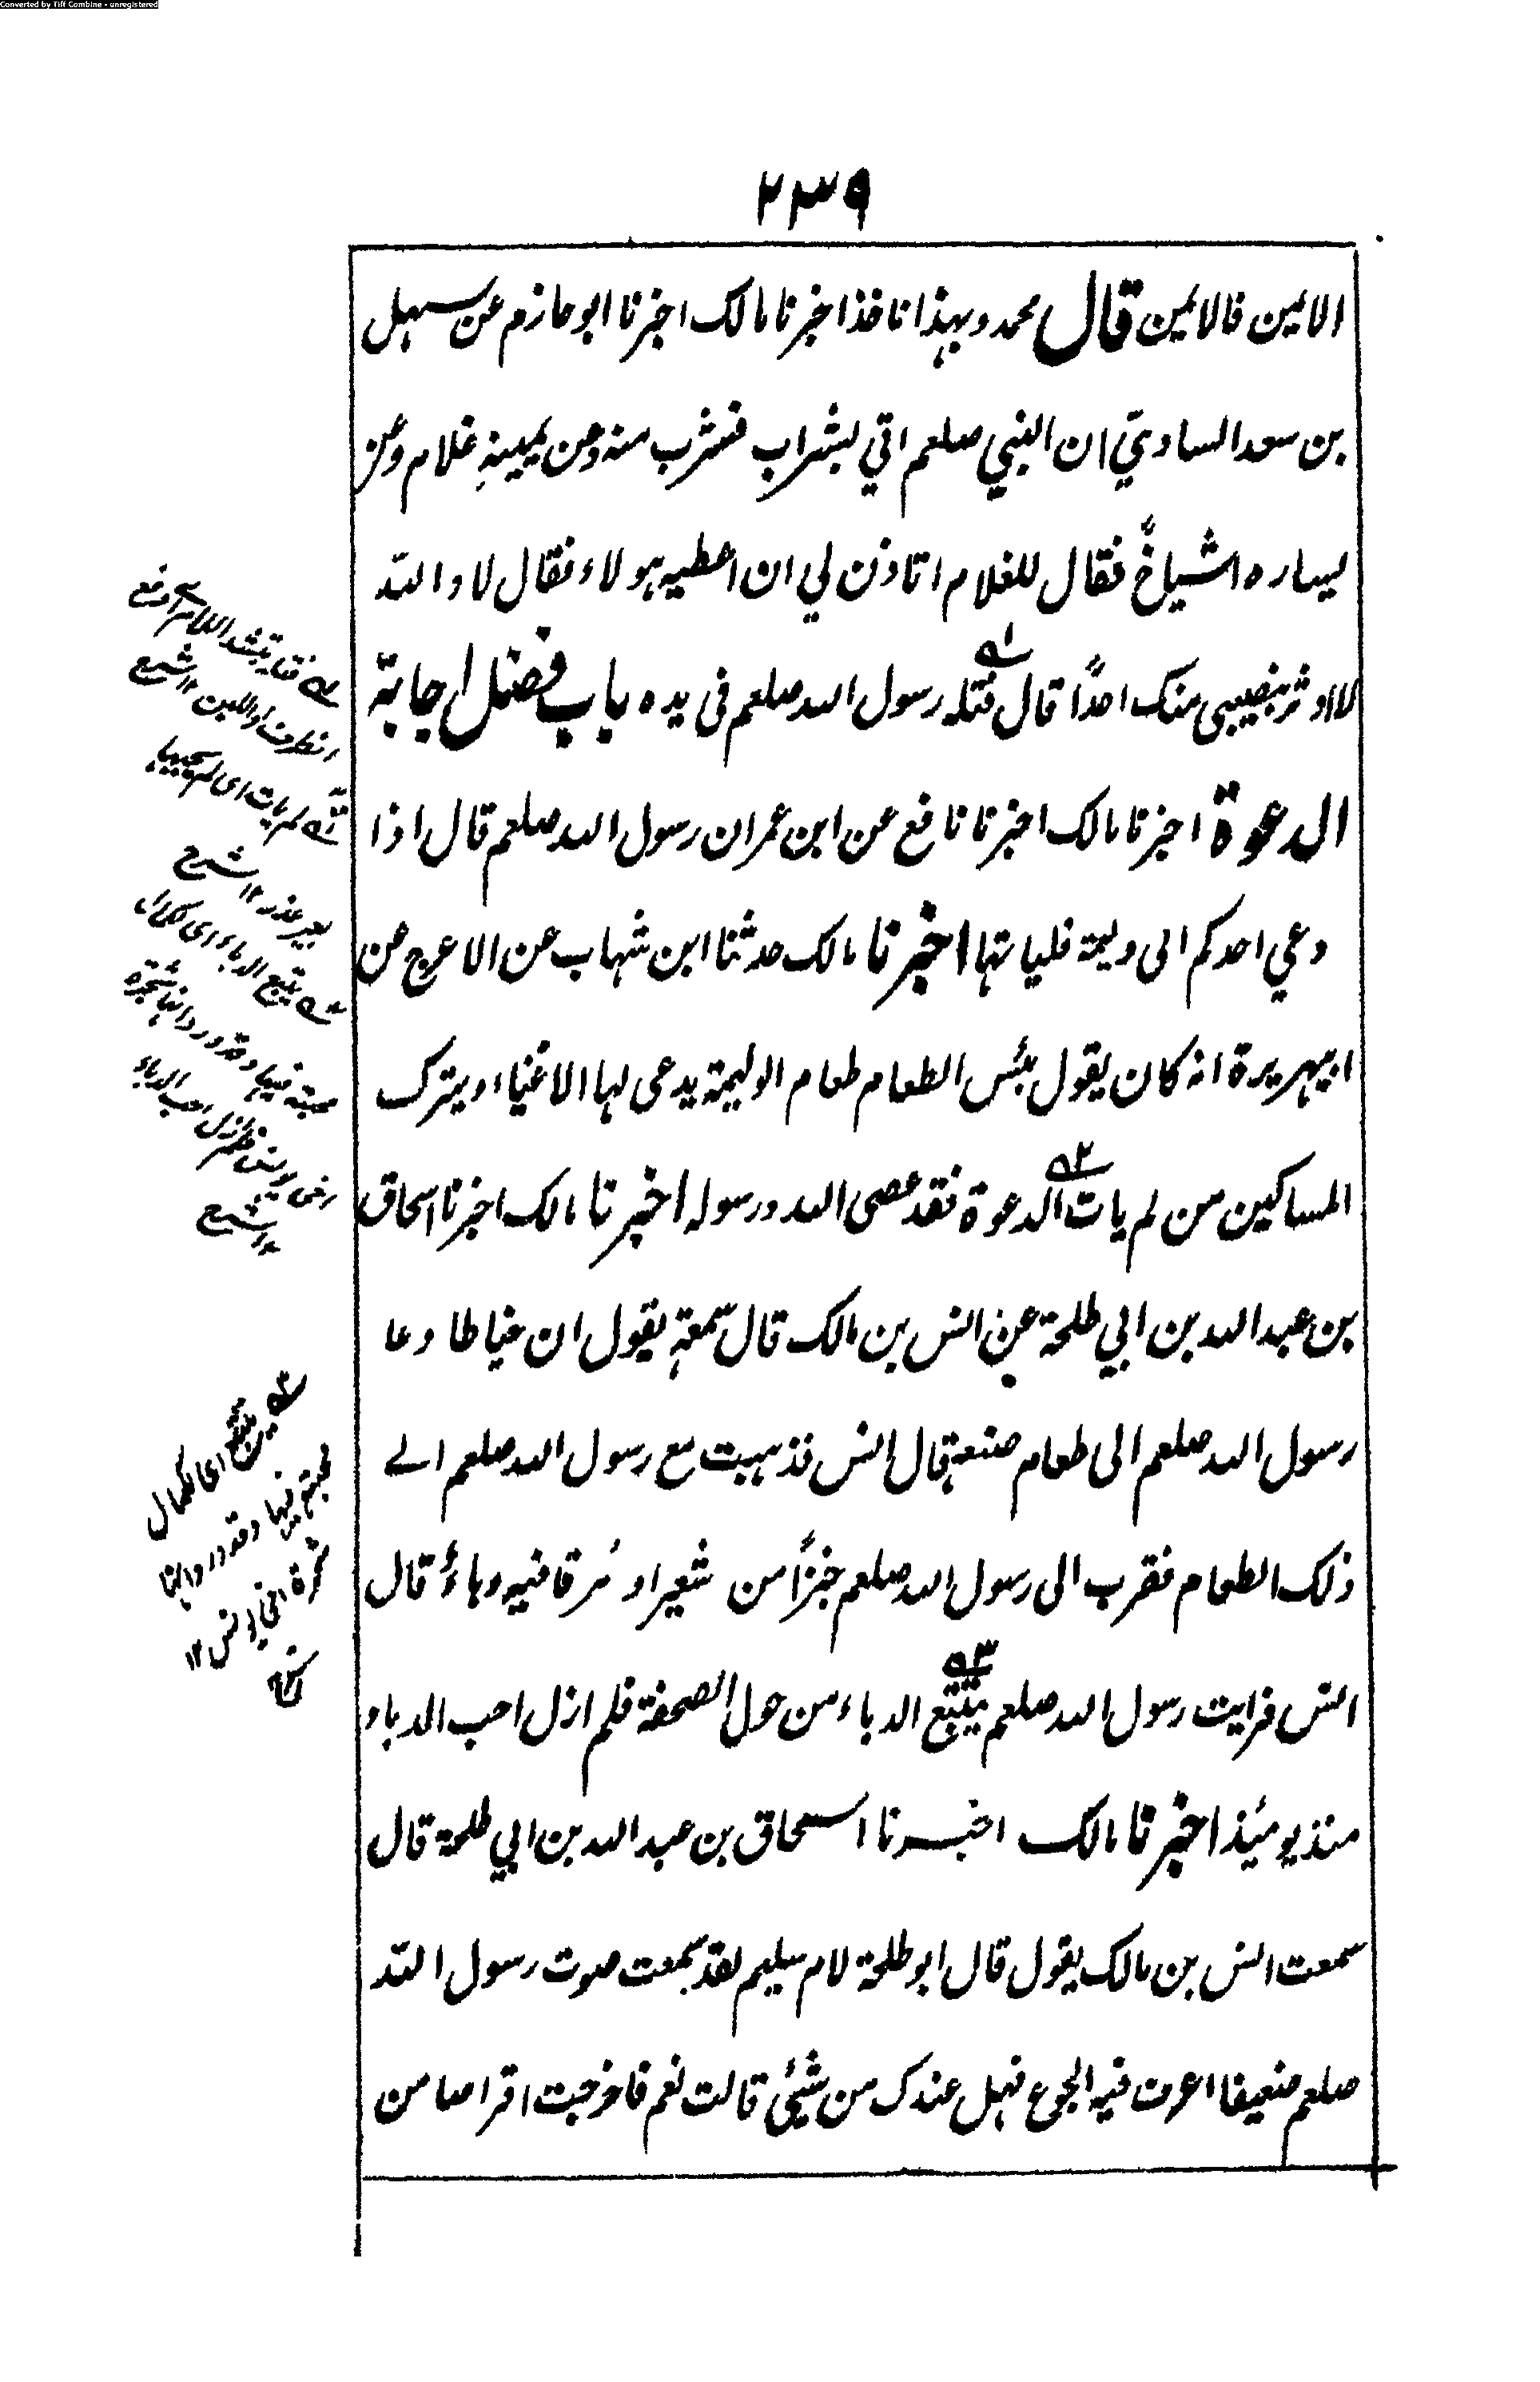 Converted by Tiff Combine - unregistered
٢٣٩
الايمن فالايمن قال محمد وبهذا ناخذ اخبرنا مالك اخبرنا ابو حازم عن سهل
بن سعد الساديّ ان النبي صلعم اتي بشراب فشرب منه وعن يمينهِ غلام وعن
يساره اشياخٌ فقال للغلام اتاذن لي ان اعطيه هولاء فقال لا والله
لا اوثر بنصيبي منك احدًا قال فتله رسول الله صلعم في يده باب فضل اجابة
الدعوة اخبرنا مالك اخبرنا نافع عن ابن عمر ان رسول الله صلعم قال اذا
دعي احدكم الى وليمة فلياتها اخبرنا مالك حدثنا ابن شهاب عن الاعرج عن
ابيهريرة انه كان يقول بئس الطعام طعام الوليمة يدعى لها الاغنياء ويترك
المساكين من لم يات الدعوة فقد عصى الله ورسوله اخبرنا مالك اخبرنا اسحاق
بن عبد الله بن ابي طلحة عن انس بن مالك قال سمعته يقول ان خياطا دعا
رسول الله صلعم الى طعام صنعه قال انس فذهبت مع رسول الله صلعم الے
ذلك الطعام فقرب الى رسول الله صلعم خبزًا من شعير او مُرقا فيه دباءٌ قال
انس فرايت رسول الله صلعم يتتبع الدباء من حول الصحفة فلم ازل احب الدباء
منذ يومئيذ اخبرنا مالك اخبرنا اسحاق بن عبد الله بن ابي طلحة قال
سمعت انس بن مالك يقول قال ابو طلحة لام سليم لقد سمعت صوت رسول الله
صلعم ضعيفا اعرف فيه الجوع فهل عندك من شيئ قالت نعم فاخرجت اقراصا من
لم يات اى لم يجيبها
بغير عذر ١٢ شرح
يتتبع الدباء اى لكمال